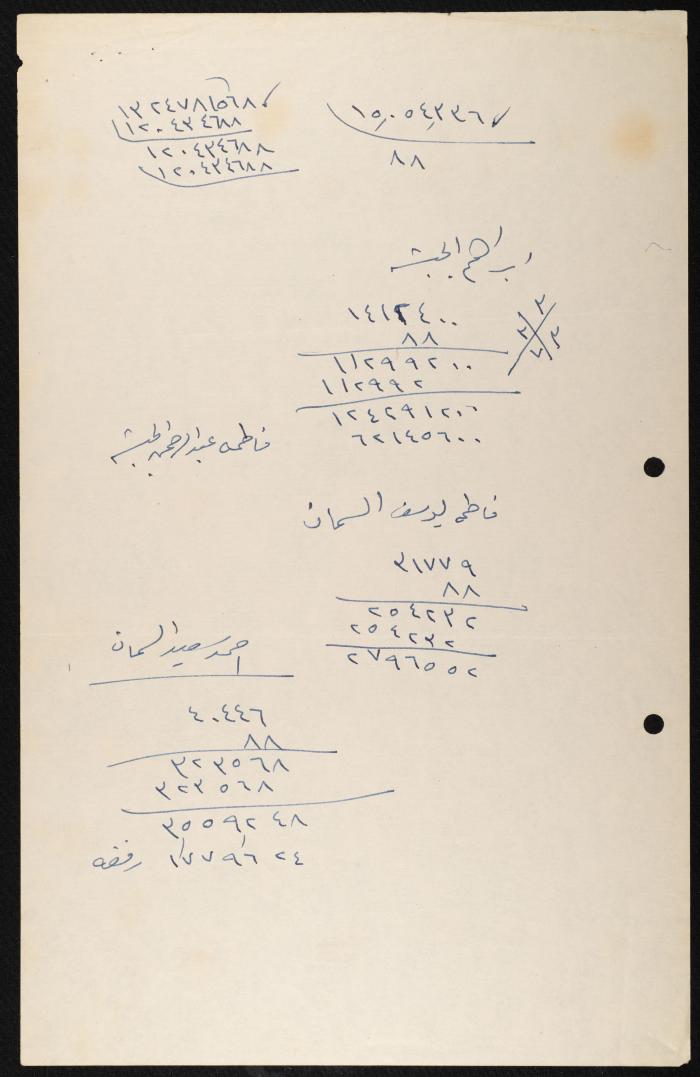 ١٥,٠٥٤,٣٣٦
٨٨
١٣٢٤٧٨١٥٦٨
١٢٠٤٣٤٦٨٨
١٢٠٤٣٤٦٨٨
١٢٠٤٣٤٦٨٨
ابراهيم الحبشه
١٤١٢٤٠٠
٨٨
١١٢٩٩٢٠٠
١١٢٩٩٢
١٢٤٢٩١٢٠٠
٦٢١٤٥٦٠٠
فاطمه عبدالرحمن الحبشه
فاطمه يوسف السمان
٣١٧٧٩
٨٨
٢٥٤٢٣٢
٢٥٤٢٣٢
٢٧٩٦٥٥٢
احمد سعيد السمان
٤٠٤٤٦
٨٨
٣٢٣٥٦٨
٣٢٣٥٦٨
٣٥٥٩٢٤٨
١٧٧٩٦٢٤ رفقه